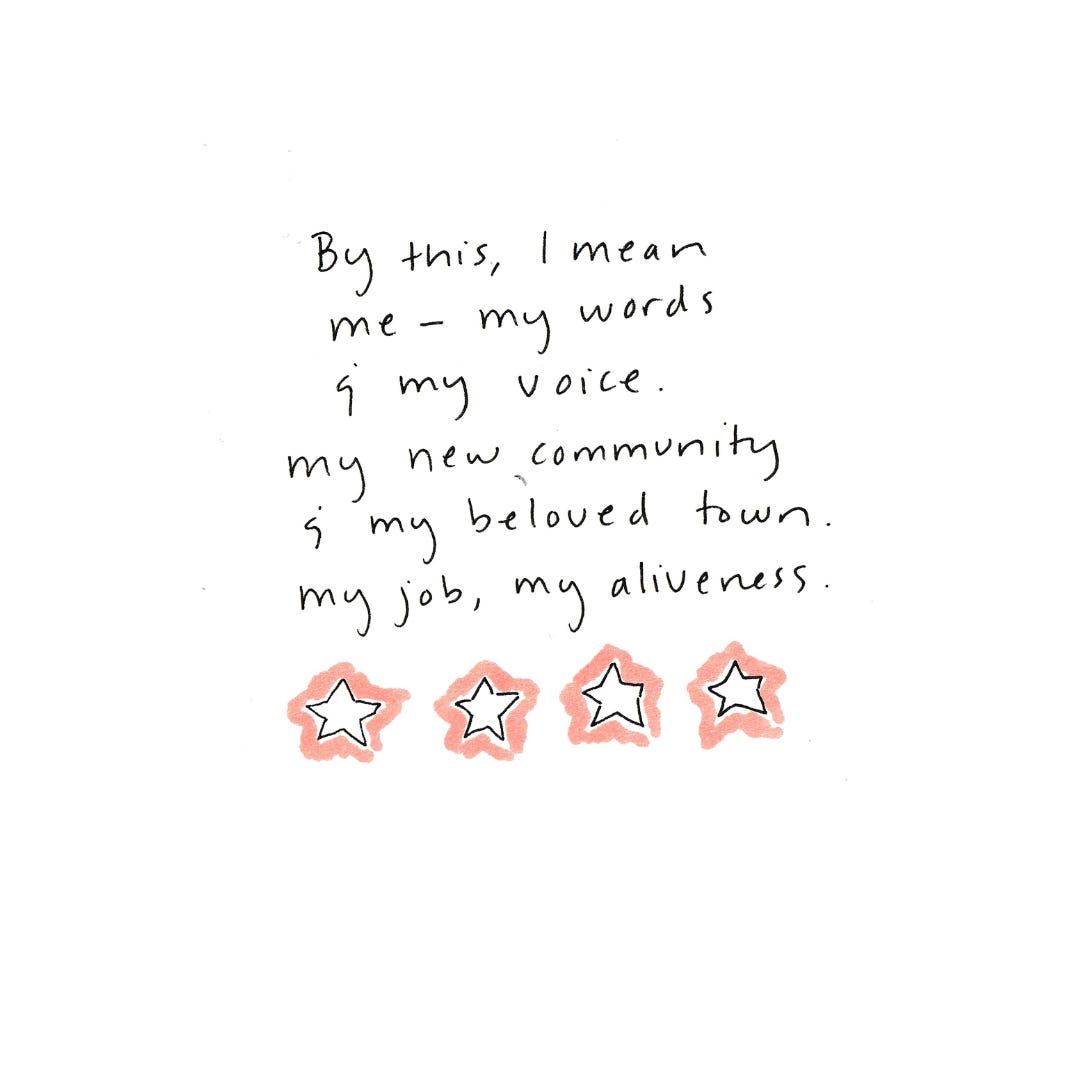 By this, I mean
me – my words
& my voice.
my new community
& my beloved town.
my job, my aliveness.